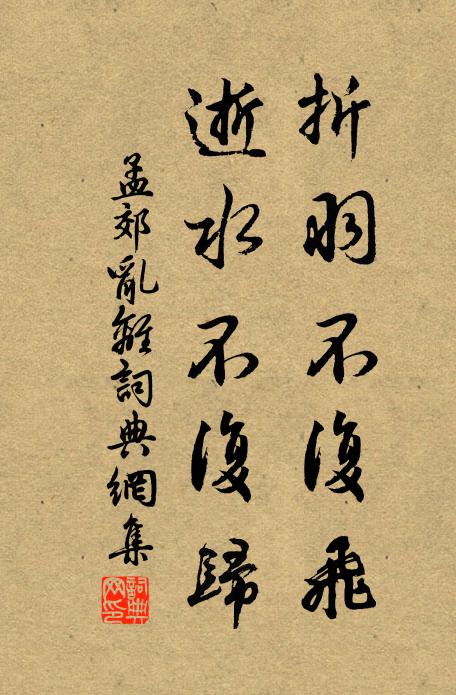 折羽不復飛
逝水不復歸
孟郊亂離詞典網集
詞典网印